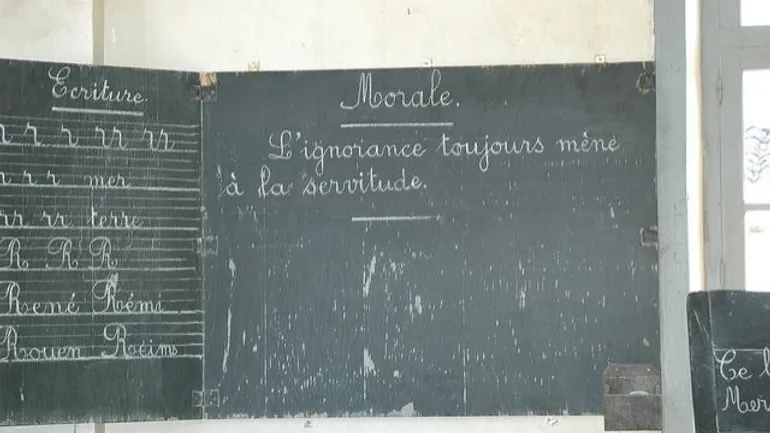 Ecriture.
r r r rr rr
r r r mer
rr rr terre
R R R
René Rémi
Rouen Reims
Morale.
L'ignorance toujours mène
à la servitude.
Ce
Mer